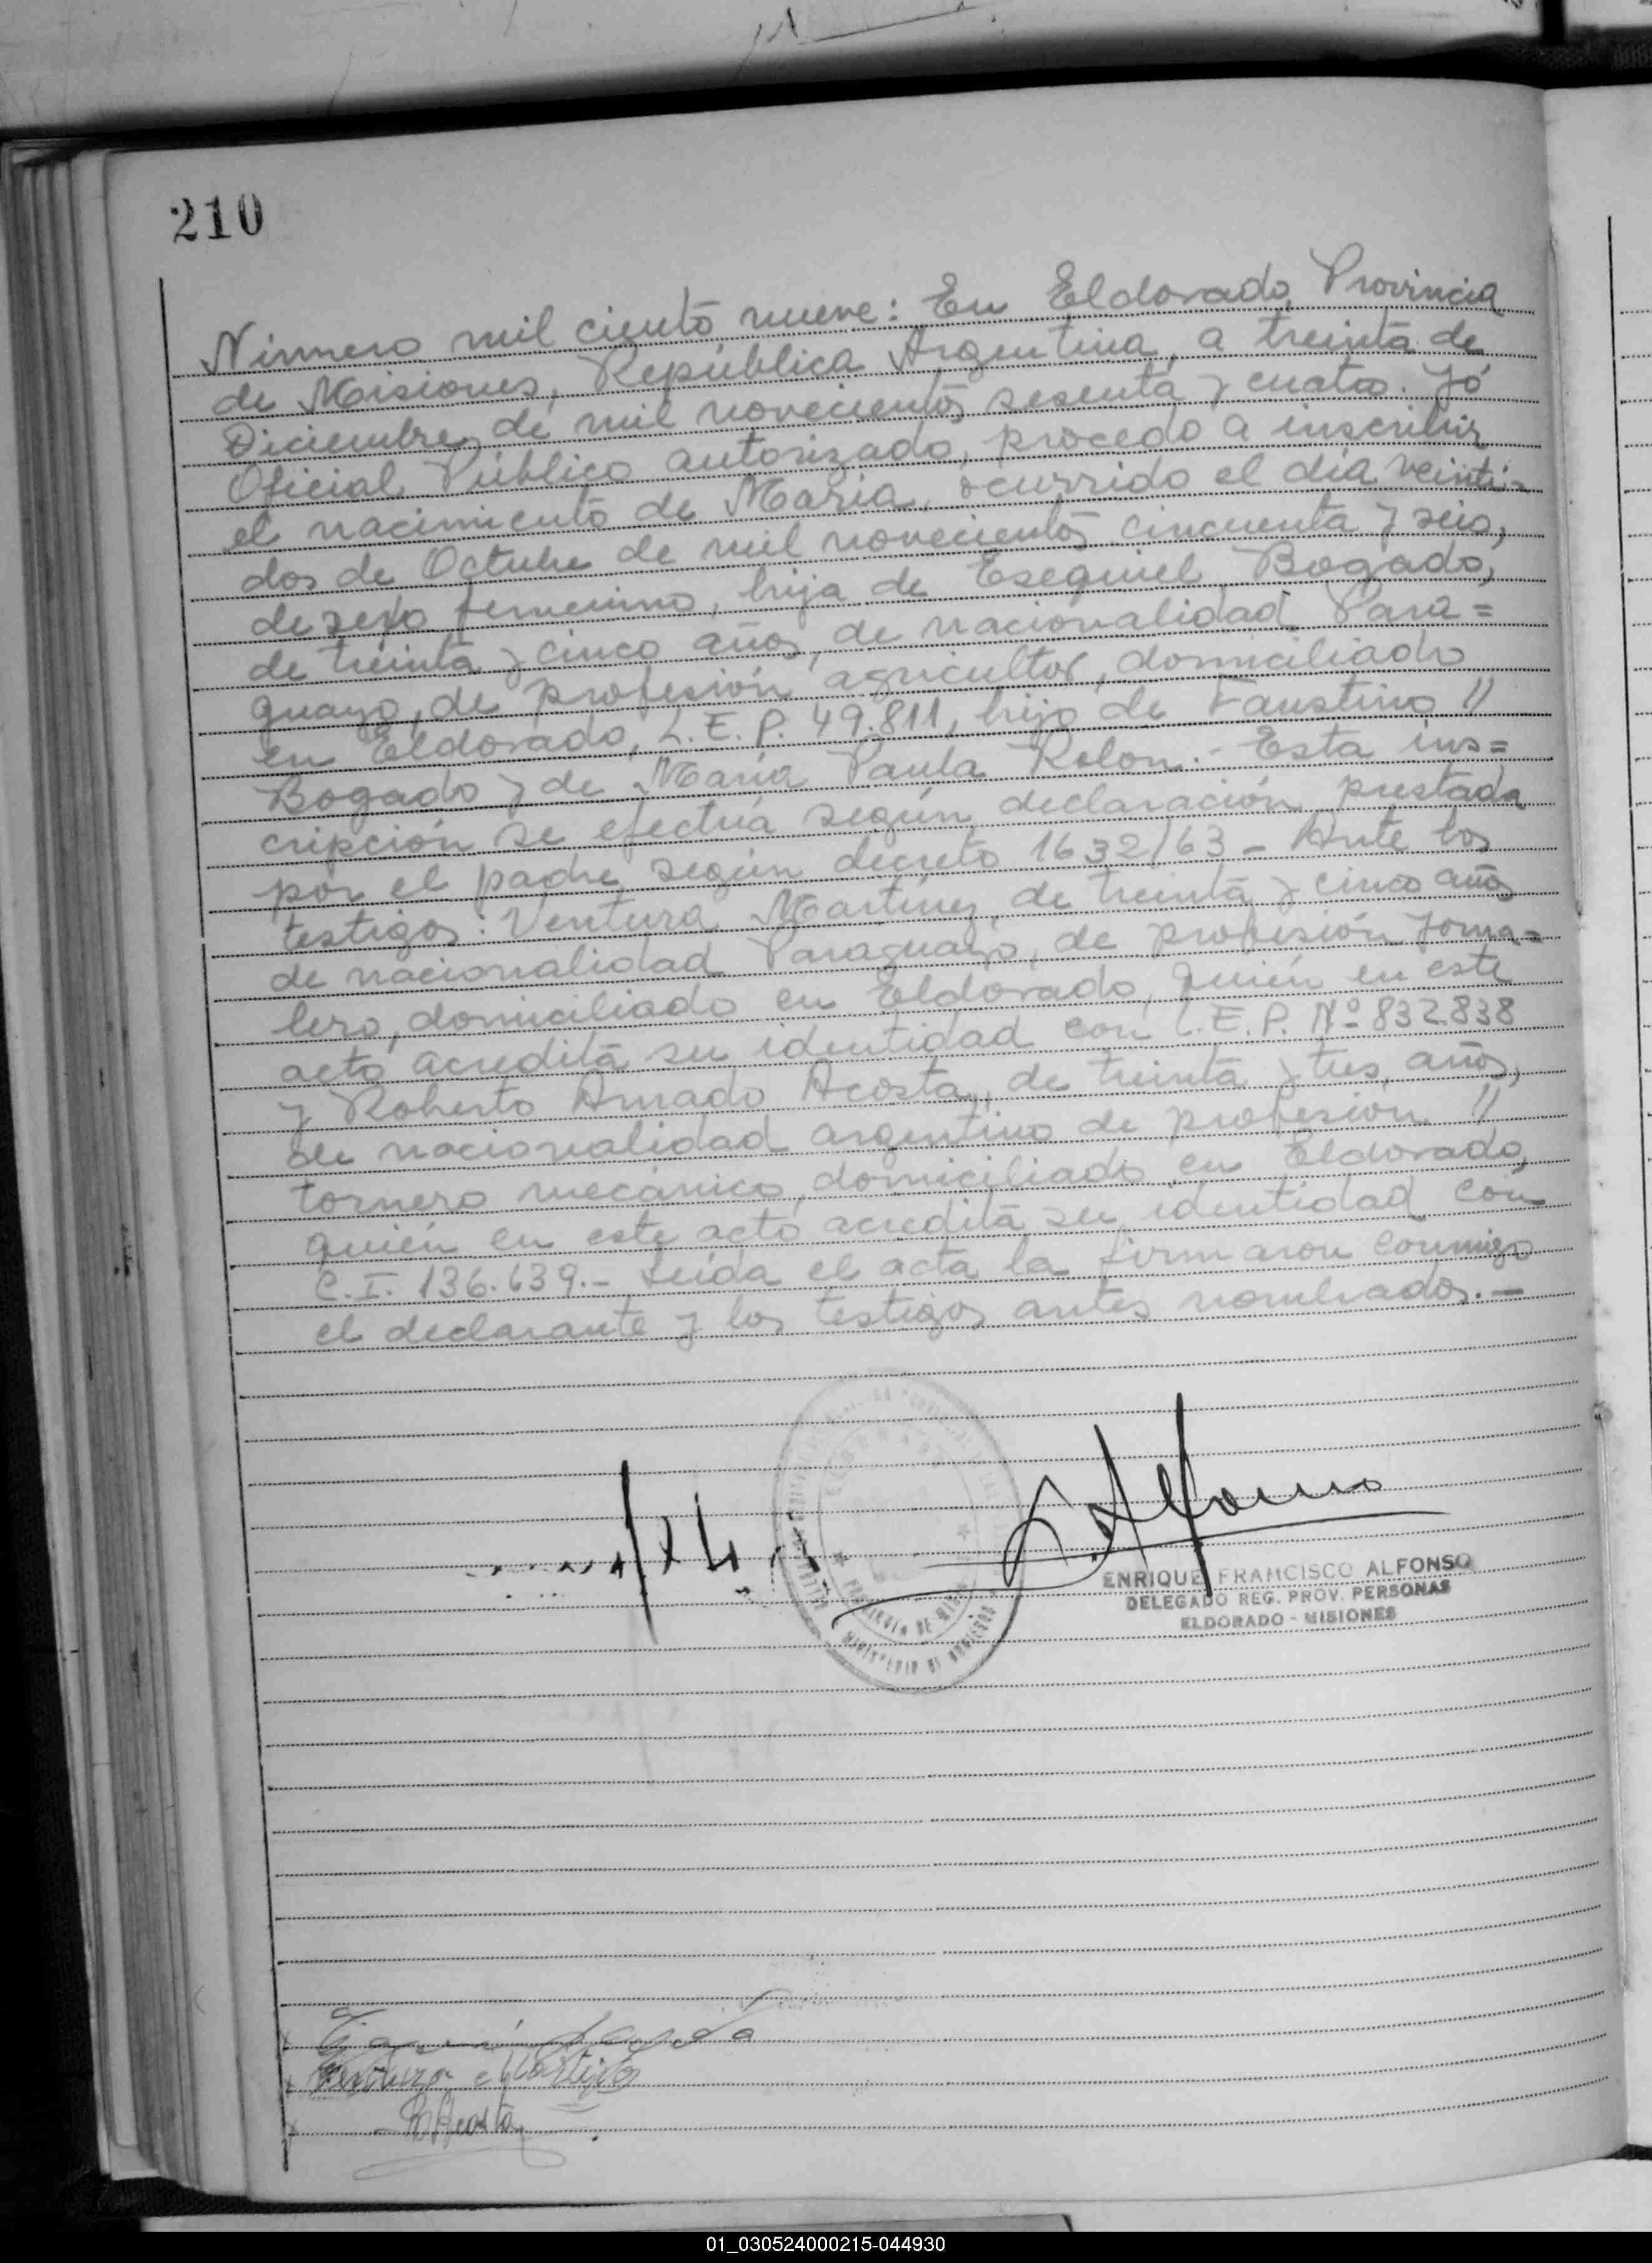 210
Número mil ciento nueve: En Eldorado, Provincia
de Misiones, República Argentina, a treinta de
Diciembre, de mil novecientos sesenta y cuatro. Yó
Oficial Público autorizado, procedo a inscribir
el nacimiento de María, ocurrido el día veinti-
dos de Octubre de mil novecientos cincuenta y seis,
de sexo femenino, hija de Esequiel Bogado,
de treinta y cinco años, de nacionalidad Para=
guayo, de profesión agricultor, domiciliado
en Eldorado, L.E.P. 49.811, hijo de Faustino //
Bogado y de María Paula Rolon.- Esta ins=
cripción se efectúa según declaración prestada
por el padre según decreto 1632/63 - Ante los
testigos: Ventura Martínez, de treinta y cinco años
de nacionalidad Paraguayo, de profesión Jorna=
lero, domiciliado en Eldorado, quién en este
acto acredita su identidad con L.E.P. Nº 832.838
y Roberto Amado Acosta, de treinta y tres, años,
de nacionalidad argentino de profesion //
tornero mecánico, domiciliado en Eldorado,
quién en este acto acredita su identidad con
C.I. 136.639.- Leída el acta la firmaron conmigo
el declarante y los testigos antes nombrados.-
ENRIQUE FRANCISCO ALFONSO
DELEGADO REG. PROV. PERSONAS
ELDORADO - MISIONES
Ventura Martinez
R Acosta
01_030524000215-044930